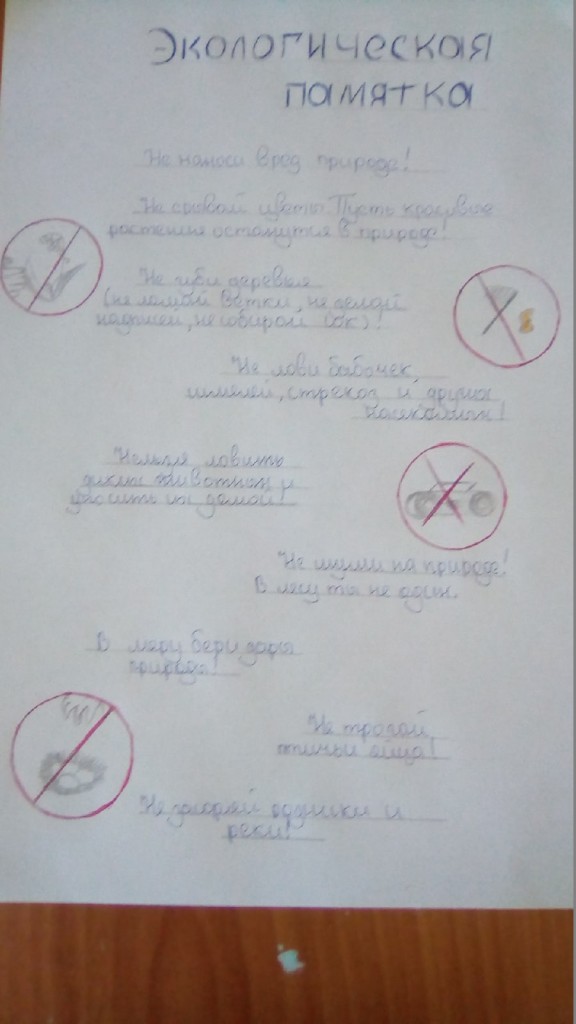 Экологическая
памятка
Не наноси вред природе!
Не срывай цветы. Пусть красивые
растения останутся в природе!
Не губи деревья
(не ломай ветки, не делай
надписей, не собирай сок)!
Не лови бабочек,
шмелей, стрекоз и других
насекомых!
Нельзя ловить
диких животных и
уносить их домой!
Не шуми на природе!
В лесу ты не один.
В меру бери дары
природы!
Не трогай
птичьи яйца!
Не загоряй одуники и
реки!